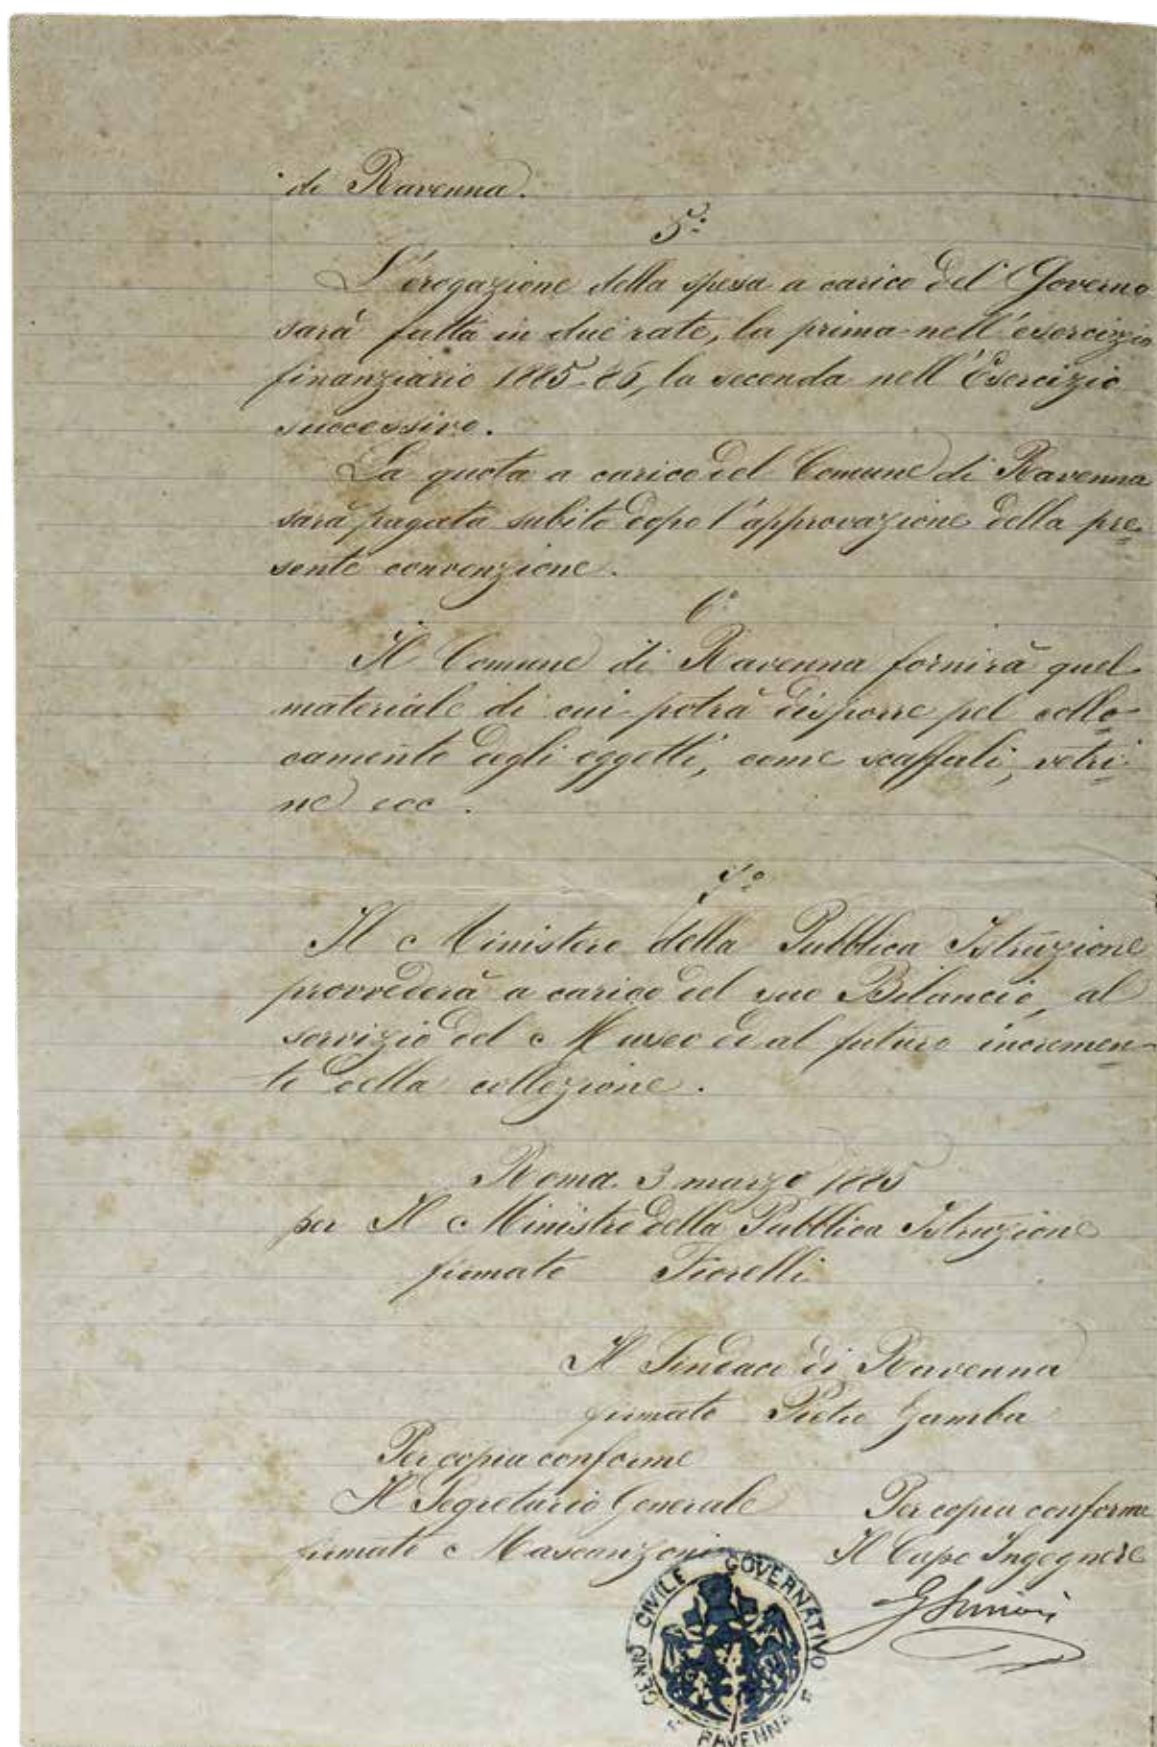 di Ravenna.
5º
L'erogazione della spesa a carico del Governo
sarà fatta in due rate, la prima nell'esercizio
finanziario 1885-86, la seconda nell'Esercizio
successivo.
La quota a carico del Comune di Ravenna
sarà pagata subito dopo l'approvazione della pre=
sente convenzione.
6º
Il Comune di Ravenna fornirà quel
materiale di cui potrà disporre pel collo=
camento degli oggetti, come scaffali, vetri=
ne ecc.
7º
Il Ministero della Pubblica Istruzione
provvederà a carico del suo Bilancio, al
servizio del Museo ed al futuro incremen=
to della collezione.
Roma 3 marzo 1885
per Il Ministro della Pubblica Istruzione
firmato Fiorelli
Il Sindaco di Ravenna
firmato Pietro Gamba
Per copia conforme
Il Segretario Generale
firmato Mascanzoni
Per copia conforme
Il Capo Ingegnere
GENIO CIVILE GOVERNATIVO
RAVENNA